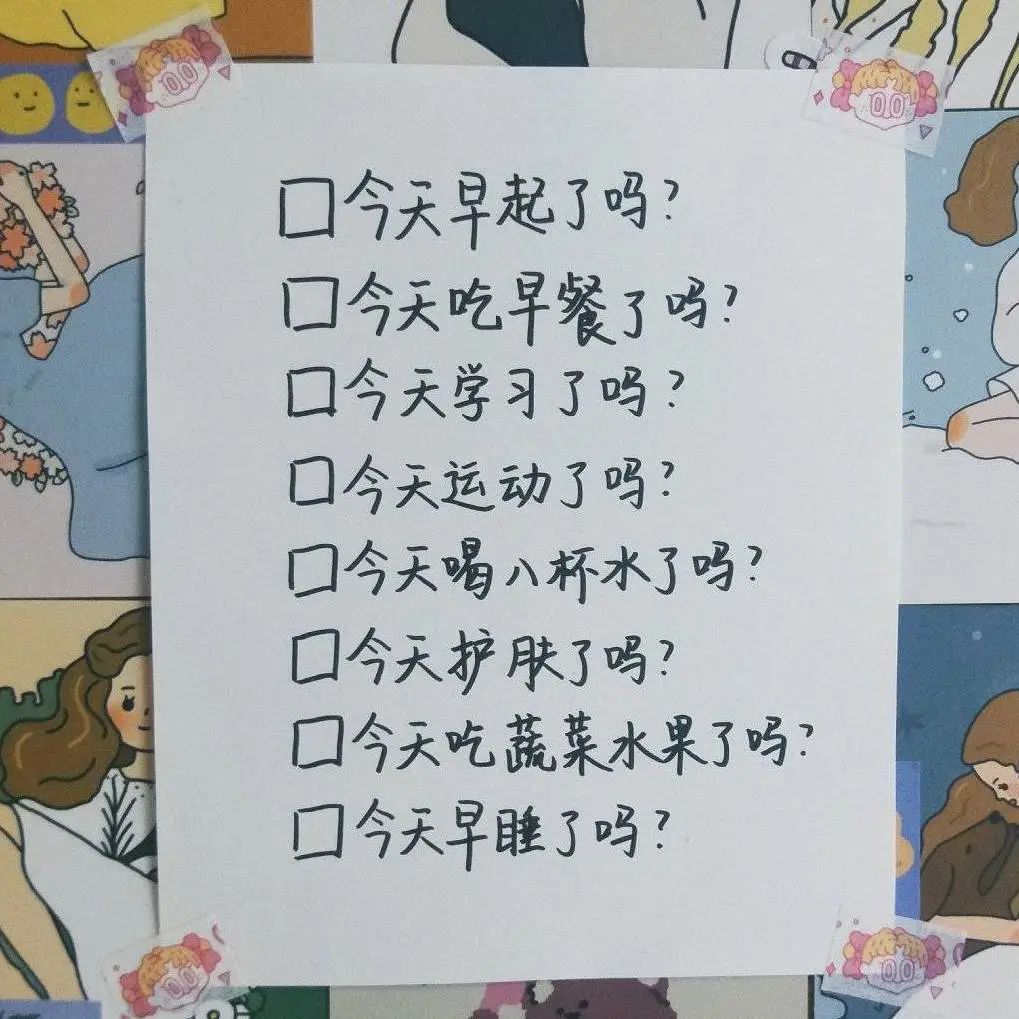 □今天早起了吗?
□今天吃早餐了吗?
□今天学习了吗?
□今天运动了吗?
□今天喝八杯水了吗?
□今天护肤了吗?
□今天吃蔬菜水果了吗?
□今天早睡了吗?